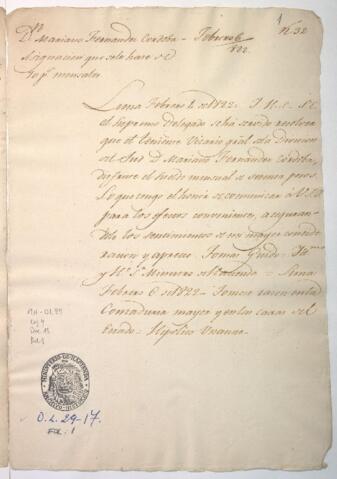 Dn Mariano Fernandez Cordoba - Febrero 6
822.
Asignacion que se le hace de
mensales
1
N. 32
Lima Febrero 4 de 1822. I. H. S. S. E.
el Supremo Delegado se ha servido resolver
que el teniente Vicario gral de la Division
del Sud D. Mariano Fernandez Cordoba,
disfrute el sueldo mensual de pesos.
Lo que tengo el honor de comunicar à V.S.Y.
para los efectos convenientes, asegurando
le los sentimientos de mi mayor conside
racion y aprecio. Tomas Guido. Ylmo
y H. Sr. Ministro de Hacienda = Lima
Febrero 6 de 1822 = Tomese razon en la
Contaduria mayor y en las caxas del
Estado = Hypolito Unanue.
MINISTERIO DE HACIENDA
O.L. 29-17.
FOL: 1